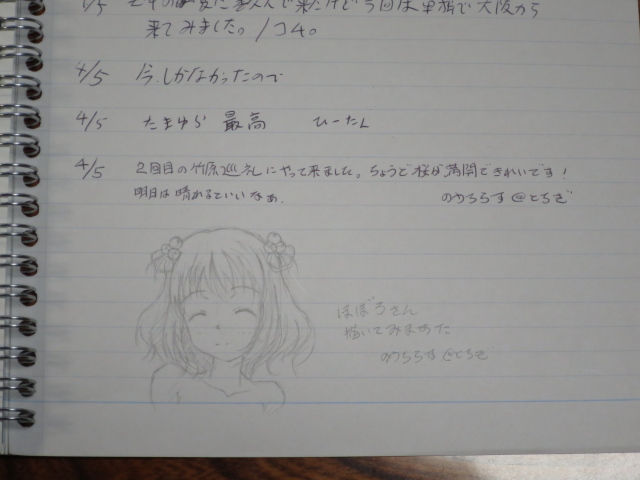 来てみました。/コ4。
4/5 今しかなかったので
4/5 たまゆら 最高 ひーたん
4/5 2回目の竹原巡礼にやって来ました。ちょうど桜が満開できれいです!
明日は晴れるといいなぁ.
のうららす@とちぎ
ほぼろさん
描いてみまあた
のうららす@とちぎ